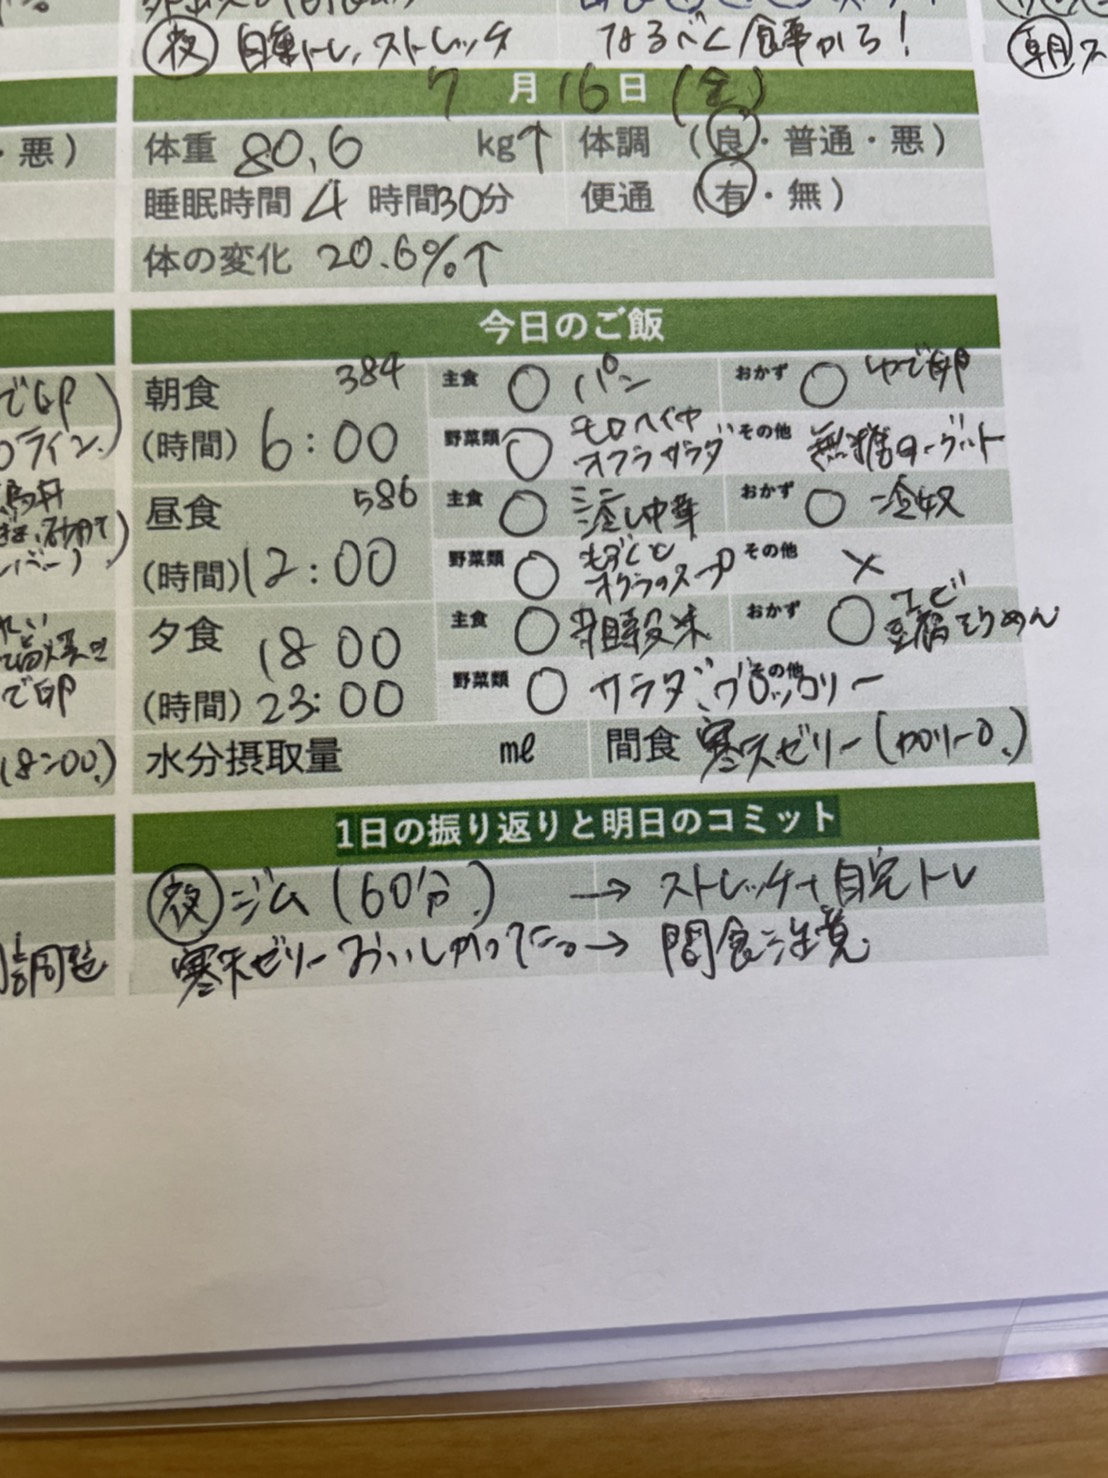 夜 自重トレ、ストレッチ
なるべく食事から!
朝 ス
7月16日(金)
・悪)
体重 80.6 kg↑ 体調 (良・普通・悪)
睡眠時間 4時間30分 便通 (有・無)
体の変化 20.6%↑
今日のご飯
朝食 384 主食 ○ パン おかず ○ ゆで卵
(時間) 6:00 野菜類 ○ モロヘイヤ オクラサラダ その他 無糖ヨーグルト
昼食 586 主食 ○ 冷し中華 おかず ○ 冷奴
(時間) 12:00 野菜類 ○ もずくと オクラのスープ その他 ×
夕食 18 00 主食 ○ 雑穀米 おかず ○ エビ 豆腐そうめん
(時間) 23:00 野菜類 ○ サラダ、ブロッコリー その他
で卵
(18:00.)
水分摂取量 ml 間食 寒天ゼリー(カロリー0.)
1日の振り返りと明日のコミット
夜 ジム(60分.) → ストレッチ+自宅トレ
調整
寒天ゼリーおいしかった。→ 間食注意